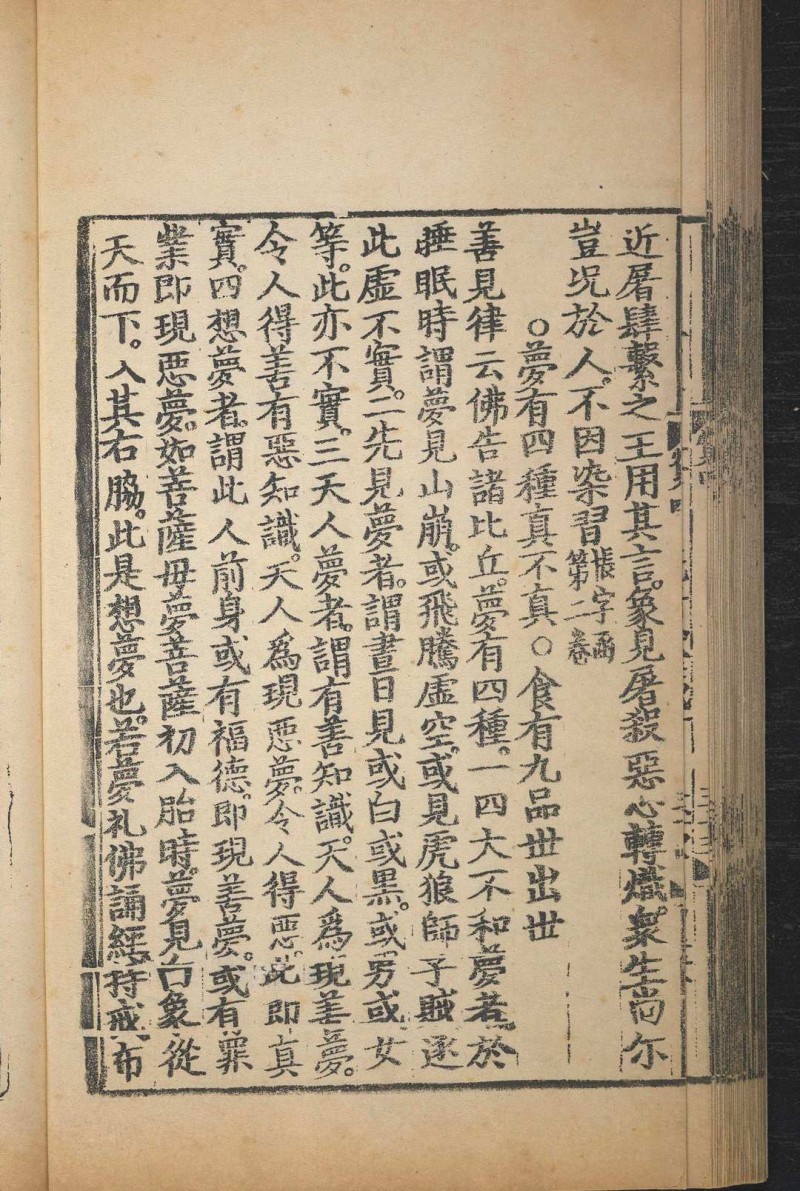 近屠肆繫之王用其言。象見屠殺惡心轉熾。衆生尚尒
豈況於人。不因染習帳字函第二卷
○夢有四種真不真○食有九品世出世
善見律云佛告諸比丘。夢有四種。一四大不和夢者於
睡眠時謂夢見山崩。或飛騰虛空。或見虎狼師子賊逐
此虛不實。二先見夢者。謂晝日見或白或黑。或男或女
等。此亦不實。三天人夢者。謂有善知識。天人爲現善夢。
令人得善有惡知識。天人爲現惡夢。令人得惡。此即真
實。四想夢者。謂此人前身或有福德。即現善夢。或有罪
業即現惡夢。如菩薩母夢菩薩初入胎時。夢見白象從
天而下。入其右脇。此是想夢也。若夢礼佛誦經持戒布